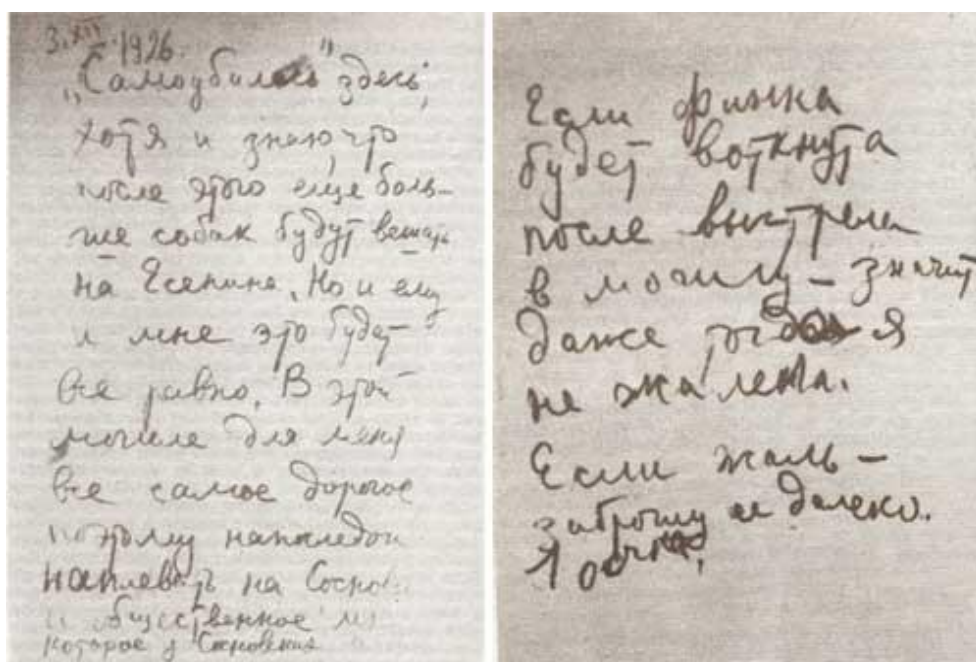 3.XII.1926.
„Самоубилась" здесь,
хотя и знаю, что
после этого еще боль-
ше собак будут вешать
на Есенина. Но и ему
и мне это будет
все равно. В этой
могиле для меня
все самое дорогое
поэтому напоследок
наплевать на Соснов
и общественное
которое у Сосновских
Если финка
будет воткнута
после выстрела
в могилу – значит
даже тогда я
не жалела.
Если жаль –
заброшу ее далеко.
1 осечка.